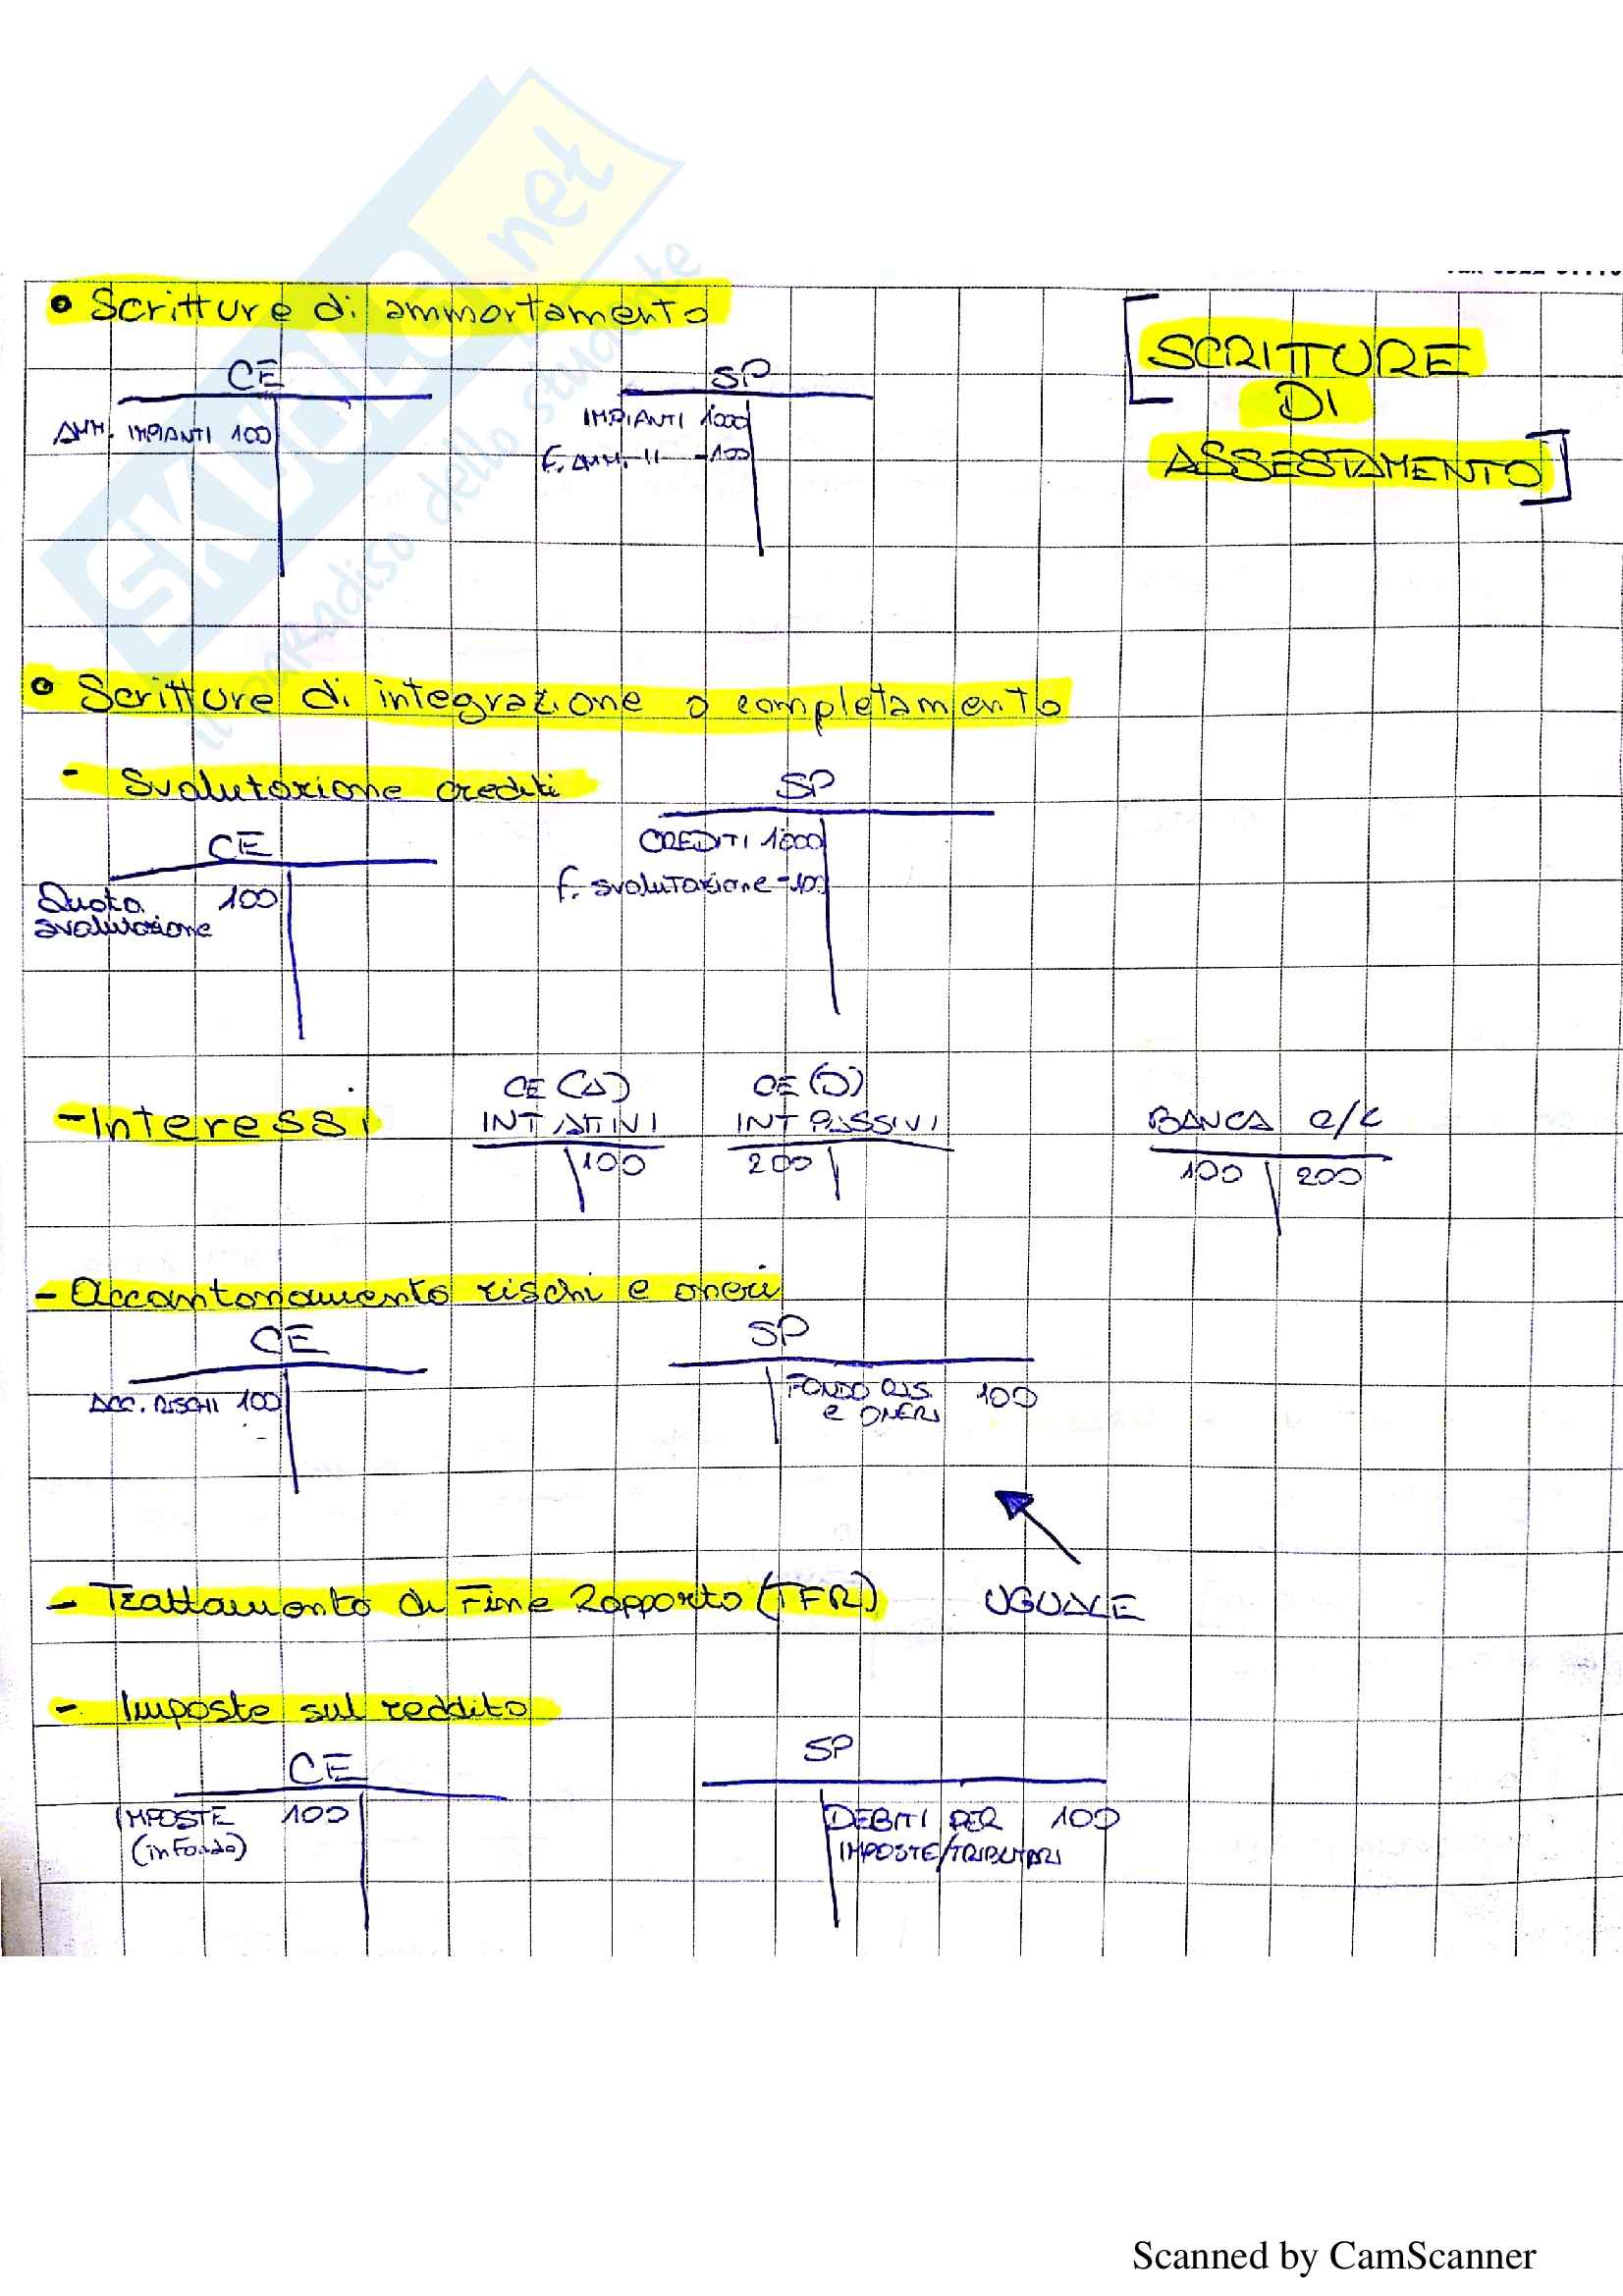 • Scritture di ammortamento
[SCRITTURE
DI
ASSESTAMENTO]
CE
SP
AMM. IMPIANTI 100
IMPIANTI 1000
F. AMM. " -100
• Scritture di integrazione o completamento
- Svalutazione crediti
SP
CREDITI 1000
F. svalutazione -100
CE
Quota 100
svalutazione
- Interessi
CE (A)
INT ATTIVI
100
CE (D)
INT PASSIVI
200
BANCA C/C
100 200
- Accantonamento rischi e oneri
CE
SP
ACC. RISCHI 100
FONDO RIS. 100
e ONERI
- Trattamento di Fine Rapporto (TFR)
UGUALE
- Imposte sul reddito
CE
SP
IMPOSTE 100
(in fondo)
DEBITI PER 100
IMPOSTE/TRIBUTARI
SKUOLA.net
il paradiso dello studente
Scanned by CamScanner